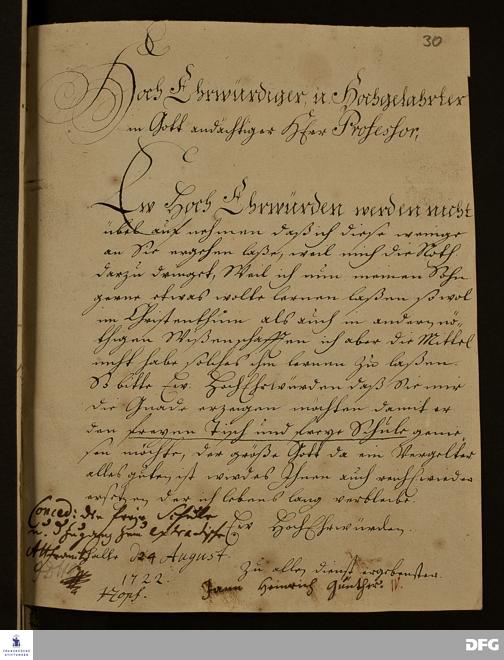 30
Hoch Ehrwürdiger, u. Hochgelahrter
in Gott andächtiger Herr Professor,
Ew Hoch Ehrwürden werden nicht
übel auf nehmen daß ich diese wenige
an Sie ergehen laße, weil mich die Noth
darzu dringet, Weil ich nun meinen Sohn
gerne etwas wolte lernen laßen so wol
im Christenthum als auch in andern nö-
thigen Wißenschafften ich aber die Mittel
nicht habe solches ihn lernen zu laßen.
So bitte Ew. HochEhrwürden daß Sie mir
die Gnade erzeigen möchten damit er
den freyen Tisch und freye Schule genie-
sen möchte, der große Gott da ein Vergelter
alles guten ist wird es Ihnen auch reichl. wieder
ersetzen der ich lebens lang verbleibe
Conced: die freye Schule
Ew HochEhrwürden.
Halle d 24 August.
1722.
zu allen dienst ergebenster.
Hann Heinrich Günther.
FRANCKESCHE STIFTUNGEN
DFG